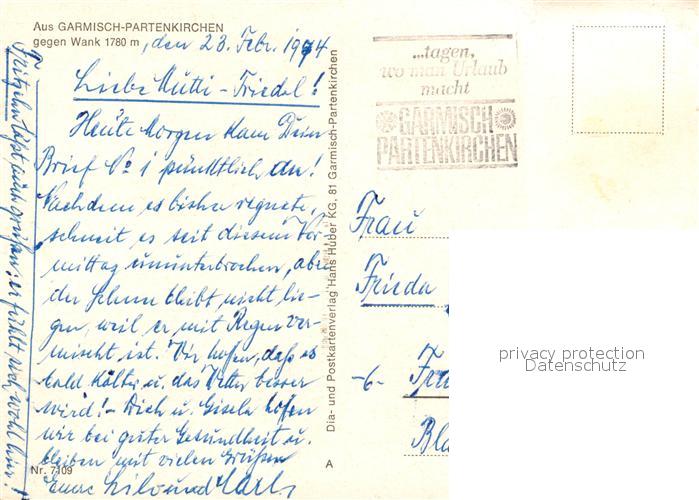 Aus GARMISCH-PARTENKIRCHEN
gegen Wank 1780 m, den 23. Febr. 1974
Liebe Mutti-Friedel!
Heute Morgen kam Dein
Brief No 1 pünktlich an!
Nachdem es bisher regnete,
schneit es seit diesem Vor-
mittag ununterbrochen, aber
der Schnee bleibt nicht lie-
gen, weil er mit Regen ver-
mischt ist. Wir hoffen, daß es
bald kälter u. das Wetter besser
wird! - Dich u. Gisela hoffen
wir bei guter Gesundheit u.
bleiben mit vielen Grüßen
Eure Lilo und
Nr. 7109
A
Fritzchen läßt auch grüßen; er fühlt sich wohl hier!
Dia- und Postkartenverlag Hans Huber KG, 81 Garmisch-Partenkirchen
...tagen,
wo man Urlaub
macht
GARMISCH
PARTENKIRCHEN
Frau
Frieda
-6-
Bla
privacy protection
Datenschutz